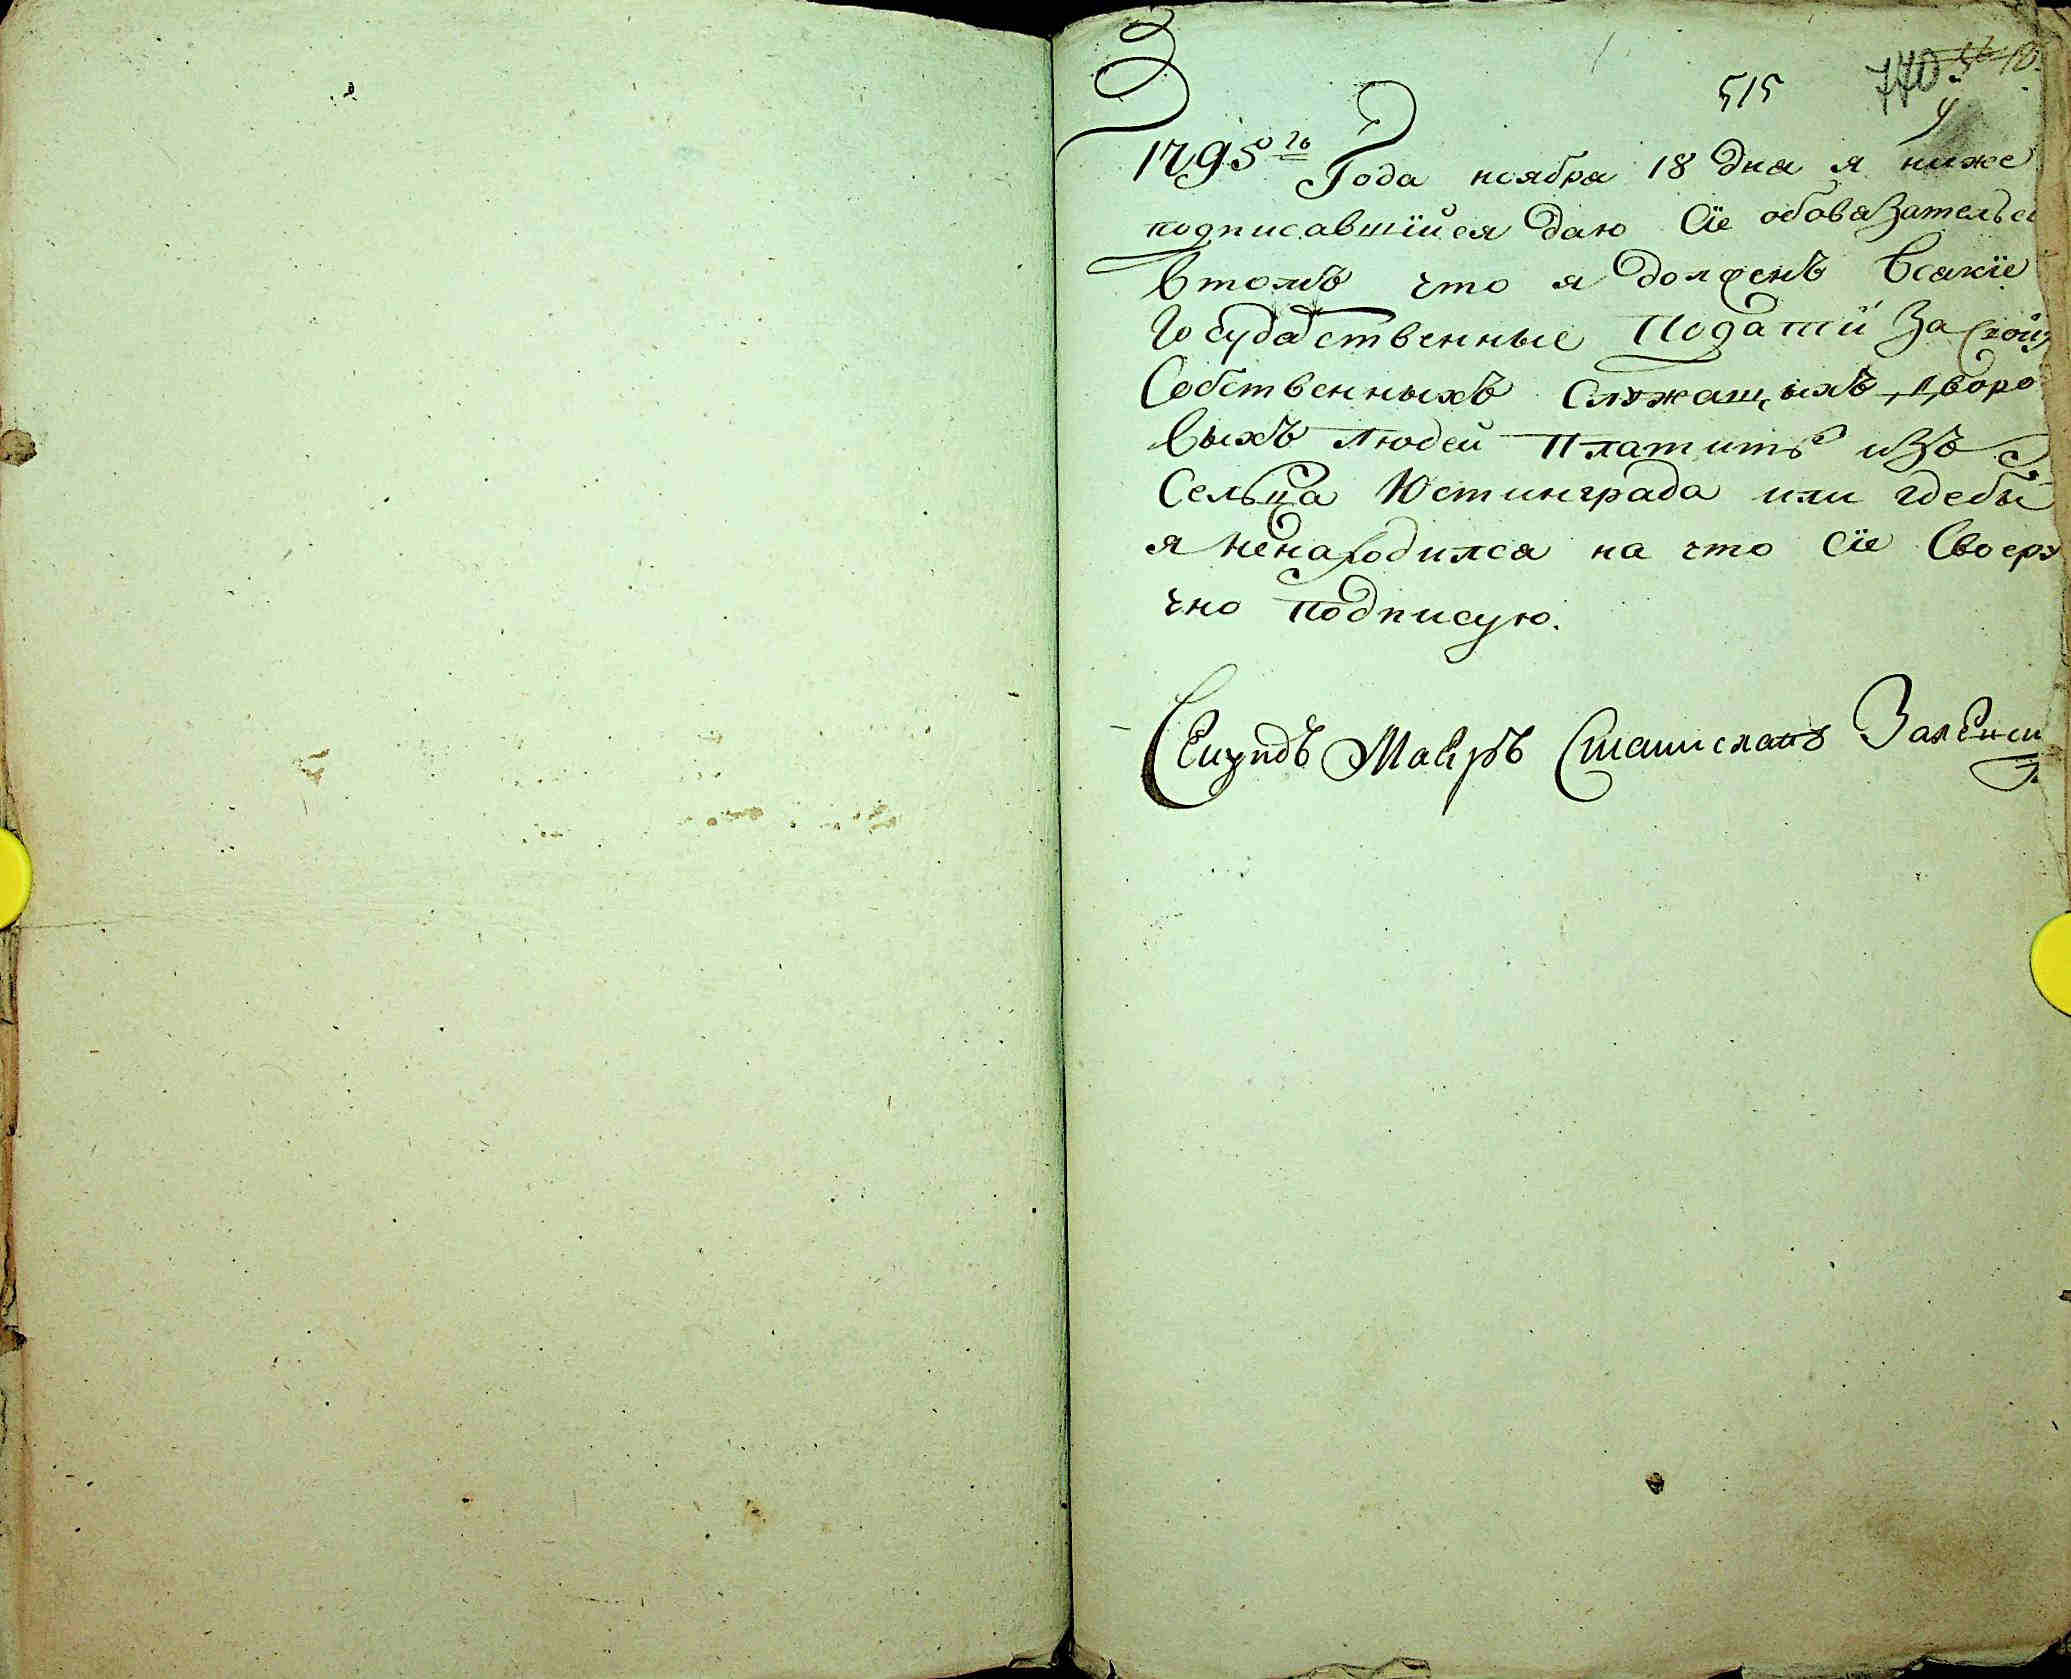 515 740
1795го Года ноября 18 дня я ниже
подписавшійся даю сіе обовязательс
втомъ что я долженъ всякіе
Государственные Подати за своихъ
Собственныхъ служащихъ дворо
выхъ людей платить изъ
Сельца Юстинграда или гдебы
я ненаходился на что сіе своеру
чно подписую.
Секундъ Маіоръ Станиславъ Заленски